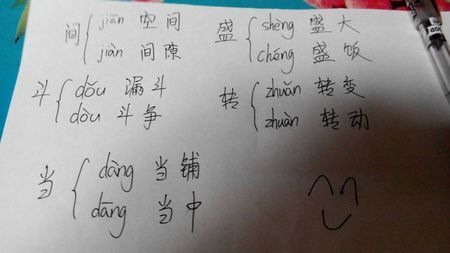 间 { jiān 空间
jiàn 间隙
盛 { shèng 盛大
chéng 盛饭
斗 { dǒu 漏斗
dòu 斗争
转 { zhuǎn 转变
zhuàn 转动
当 { dàng 当铺
dāng 当中